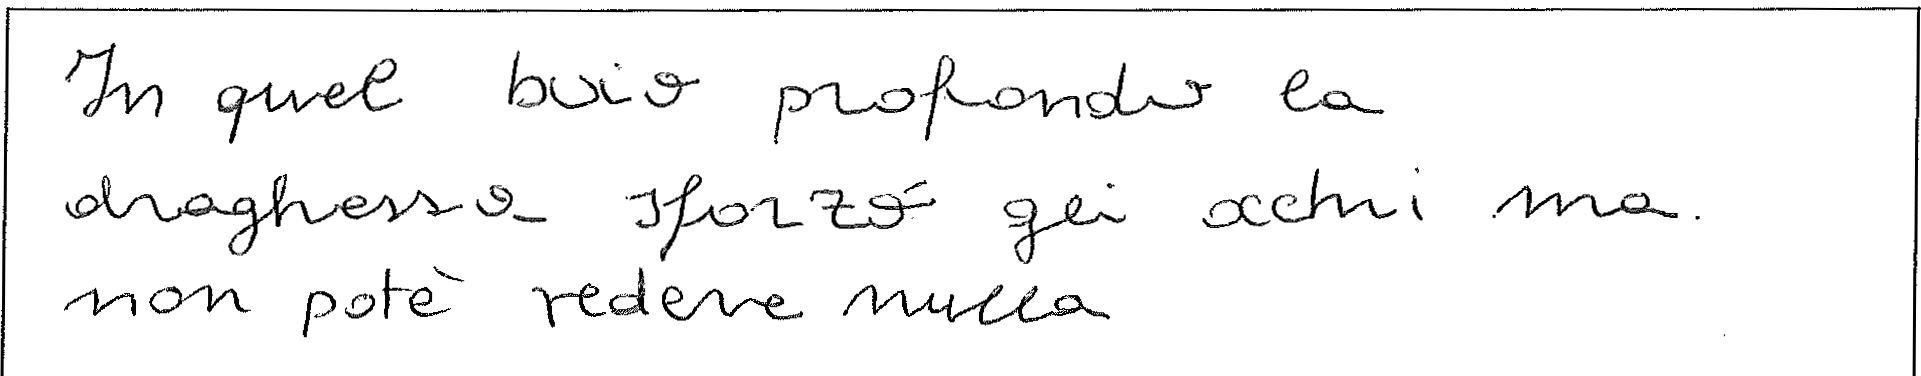 In quel buio profondo la
draghessa sforzó gli occhi ma.
non potè vedere nulla